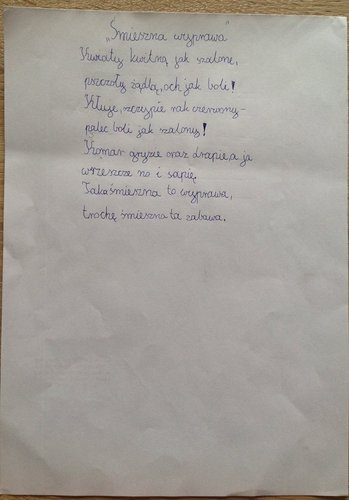 „Śmieszna wyprawa"
Kwiaty kwitną jak szalone,
pszczoły żądlą, och jak bolą!
Kłuje, szczypie rak czerwony-
palec boli jak szalony!
Komar gryzie oraz drapie, a ja
wrzeszcze no i sapię.
Taka śmieszna to wyprawa,
trochę śmieszna ta zabawa.